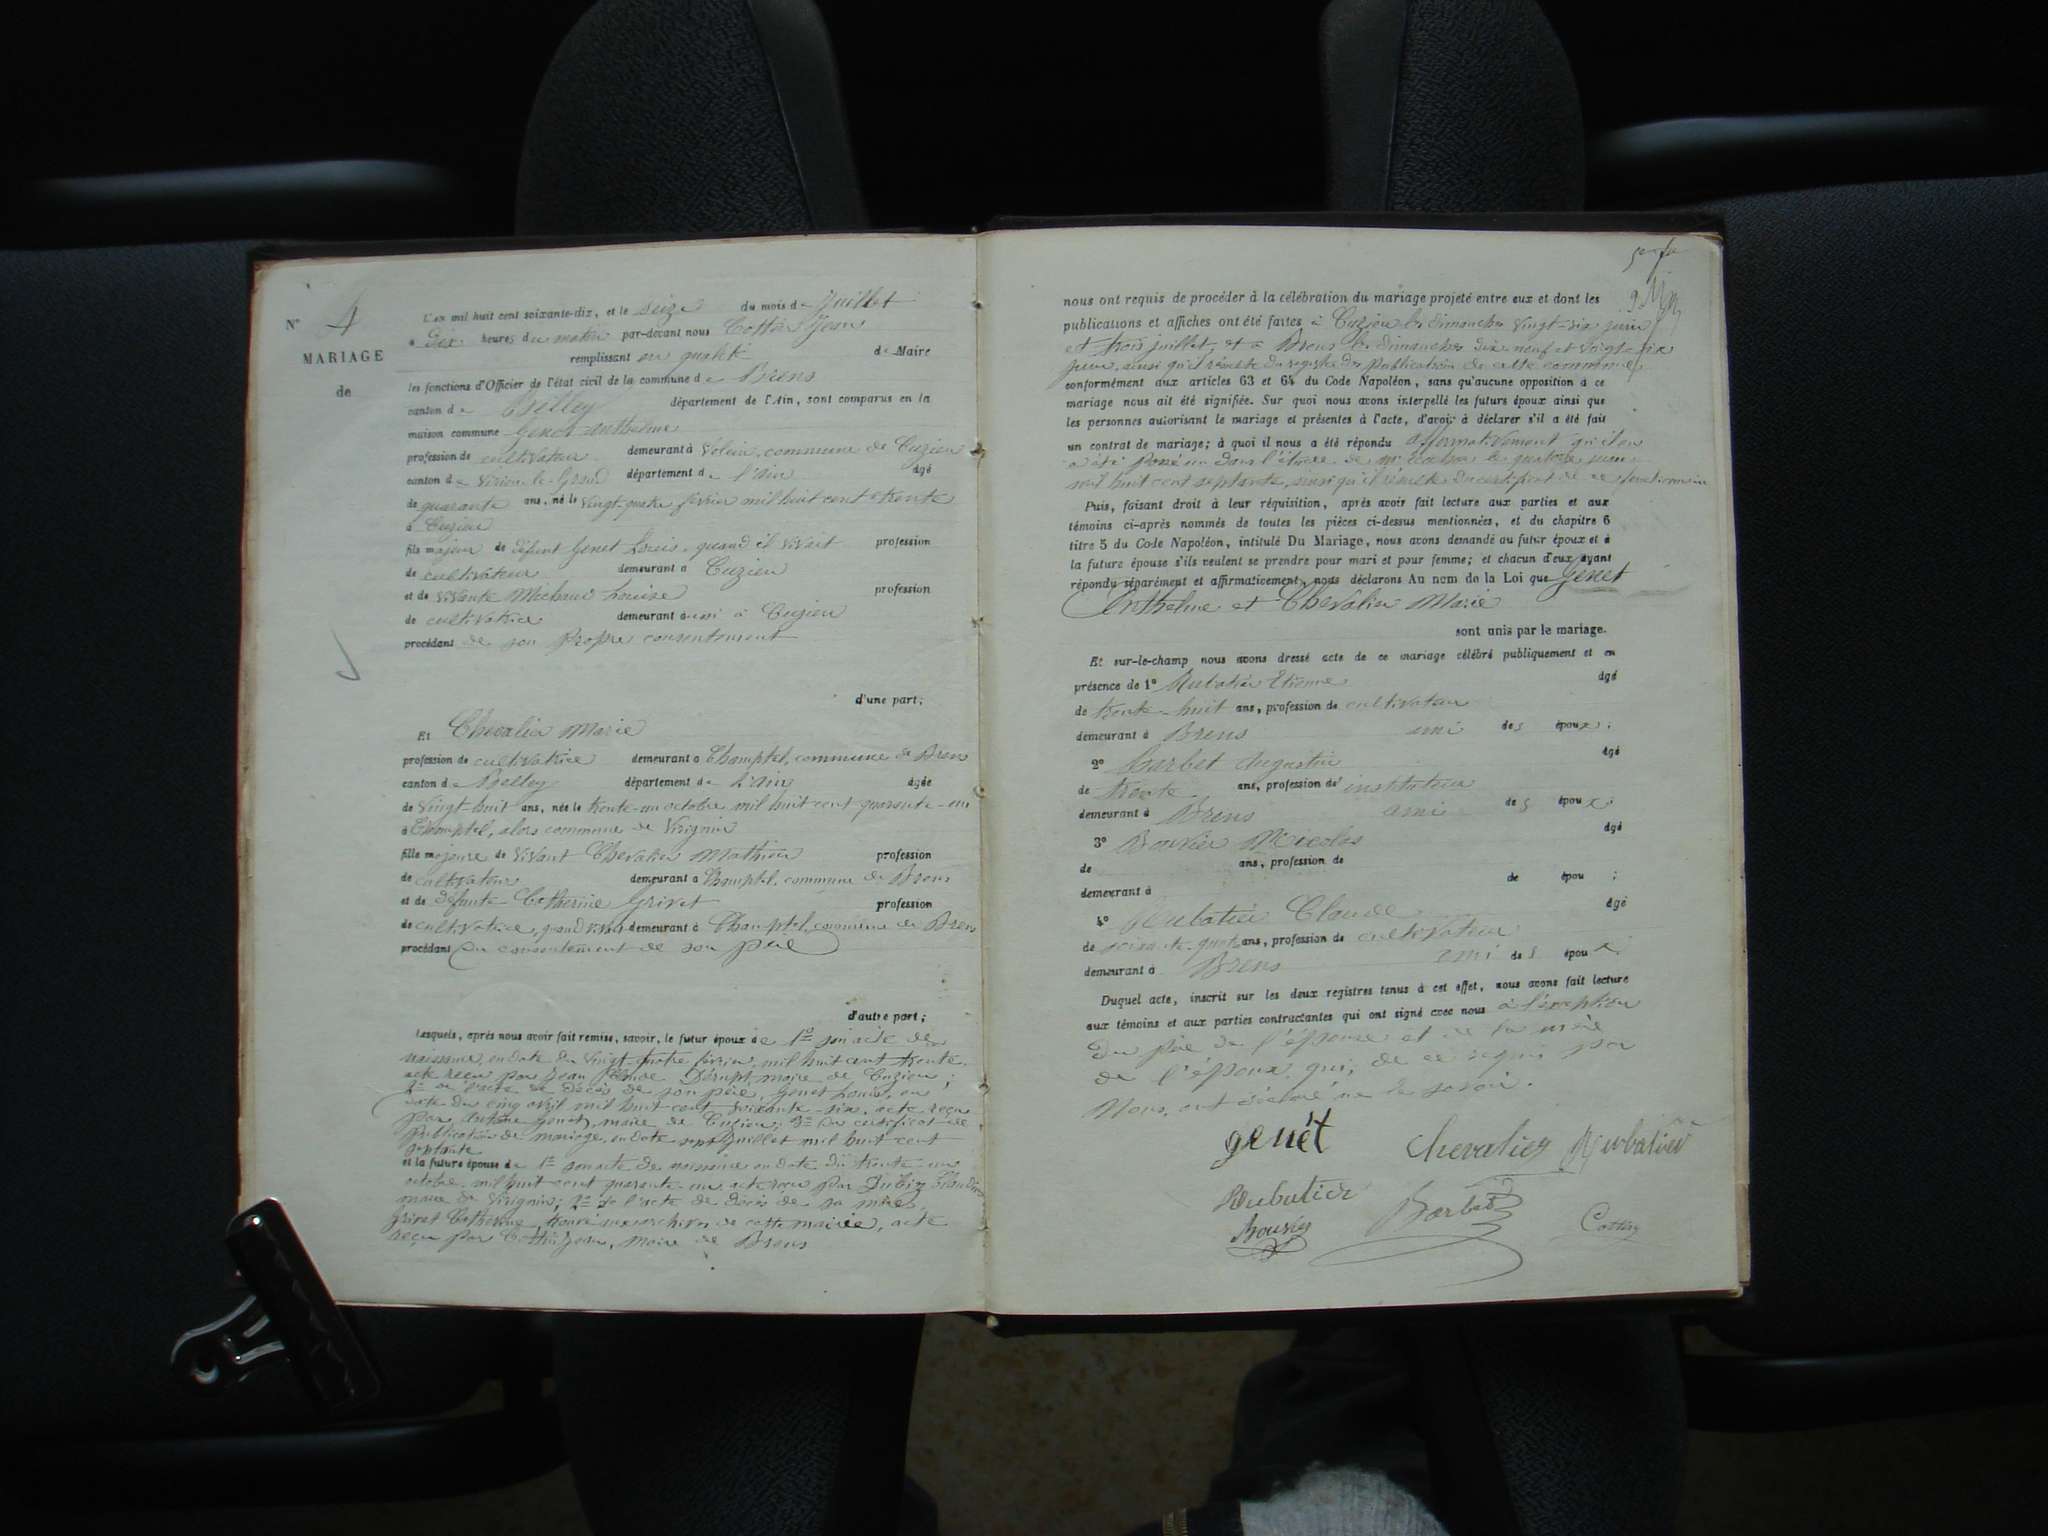 N° 4
MARIAGE
de
L'an mil huit cent soixante-dix, et le seize du mois de Juillet
à dix heures du matin par-devant nous Cottin Jean
remplissant en qualité de Maire
les fonctions d'Officier de l'état civil de la commune de Brens
canton de Belley département de l'Ain, sont comparus en la
maison commune Genet Anthelme
profession de cultivateur demeurant à Volein, commune de Cuzieu
canton de Virieu-le-Grand département de l'Ain âgé
de quarante ans, né le vingt-quatre février mil huit cent trente
à Cuzieu
fils majeur de défunt Genet Louis, quand il vivait profession
de cultivateur demeurant à Cuzieu
et de vivante Michaud Louise profession
de cultivatrice demeurant aussi à Cuzieu
procédant de son propre consentement
d'une part;
Et Chevalier Marie
profession de cultivatrice demeurant à Champtel, commune de Brens
canton de Belley département de l'Ain âgée
de vingt-huit ans, née le trente-un octobre mil huit cent quarante-un
à Champtel, alors commune de Virignin
fille majeure de vivant Chevalier Mathieu profession
de cultivateur demeurant à Champtel, commune de Brens
et de défunte Catherine Grivet profession
de cultivatrice, quand vivait demeurant à Champtel, commune de Brens
procédant du consentement de son père
d'autre part;
Lesquels, après nous avoir fait remise, savoir, le futur époux de 1° son acte de
naissance en date du vingt-quatre février mil huit cent trente
acte reçu par Jean Claude maire de Cuzieu;
2° de l'acte de décès de son père, Genet Louis, en
date du cinq avril mil huit cent soixante-six, acte reçu
par Genet, maire de Cuzieu; 3° du certificat de
publication de mariage, en date sept juillet mil huit cent
septante
et la future épouse de 1° son acte de naissance en date du trente-un
octobre mil huit cent quarante-un acte reçu par Dubin Claude
maire de Virignin; 2° de l'acte de décès de sa mère,
Grivet Catherine, trouvé aux archives de cette mairie, acte
reçu par Cottin Jean, maire de Brens
nous ont requis de procéder à la célébration du mariage projeté entre eux et dont les
publications et affiches ont été faites à Cuzieu les dimanches vingt-six juin
et trois juillet, et à Brens les dimanches dix-neuf et vingt-six
juin, ainsi qu'il résulte du registre des publications de cette commune,
conformément aux articles 63 et 64 du Code Napoléon, sans qu'aucune opposition à ce
mariage nous ait été signifiée. Sur quoi nous avons interpellé les futurs époux ainsi que
les personnes autorisant le mariage et présentes à l'acte, d'avoir à déclarer s'il a été fait
un contrat de mariage; à quoi il nous a été répondu affirmativement qu'il en
a été passé un dans l'étude de Mr le quatorze juin
mil huit cent septante, ainsi qu'il résulte du certificat de ce fonctionnaire
Puis, faisant droit à leur réquisition, après avoir fait lecture aux parties et aux
témoins ci-après nommés de toutes les pièces ci-dessus mentionnées, et du chapitre 6
titre 5 du Code Napoléon, intitulé Du Mariage, nous avons demandé au futur époux et à
la future épouse s'ils veulent se prendre pour mari et pour femme; et chacun d'eux ayant
répondu séparément et affirmativement, nous déclarons Au nom de la Loi que Genet
Anthelme et Chevalier Marie
sont unis par le mariage.
Et sur-le-champ nous avons dressé acte de ce mariage célébré publiquement et en
présence de 1° Rubatier Etienne âgé
de trente-huit ans, profession de cultivateur
demeurant à Brens ami des époux;
2° Barbet Augustin âgé
de trente ans, profession de instituteur
demeurant à Brens ami des époux;
3° Bouvier Nicolas âgé
de ans, profession de
demeurant à de épou ;
4° Rubatier Claude âgé
de soixante-quatre ans, profession de cultivateur
demeurant à Brens ami des époux
Duquel acte, inscrit sur les deux registres tenus à cet effet, nous avons fait lecture
aux témoins et aux parties contractantes qui ont signé avec nous à l'exception
du père de l'épouse et de la mère
de l'époux qui, de ce requis par
Nous, ont déclaré ne le savoir.
genet Chevalier Rubatier
Rubatier
Bouvier Barbet Cottin